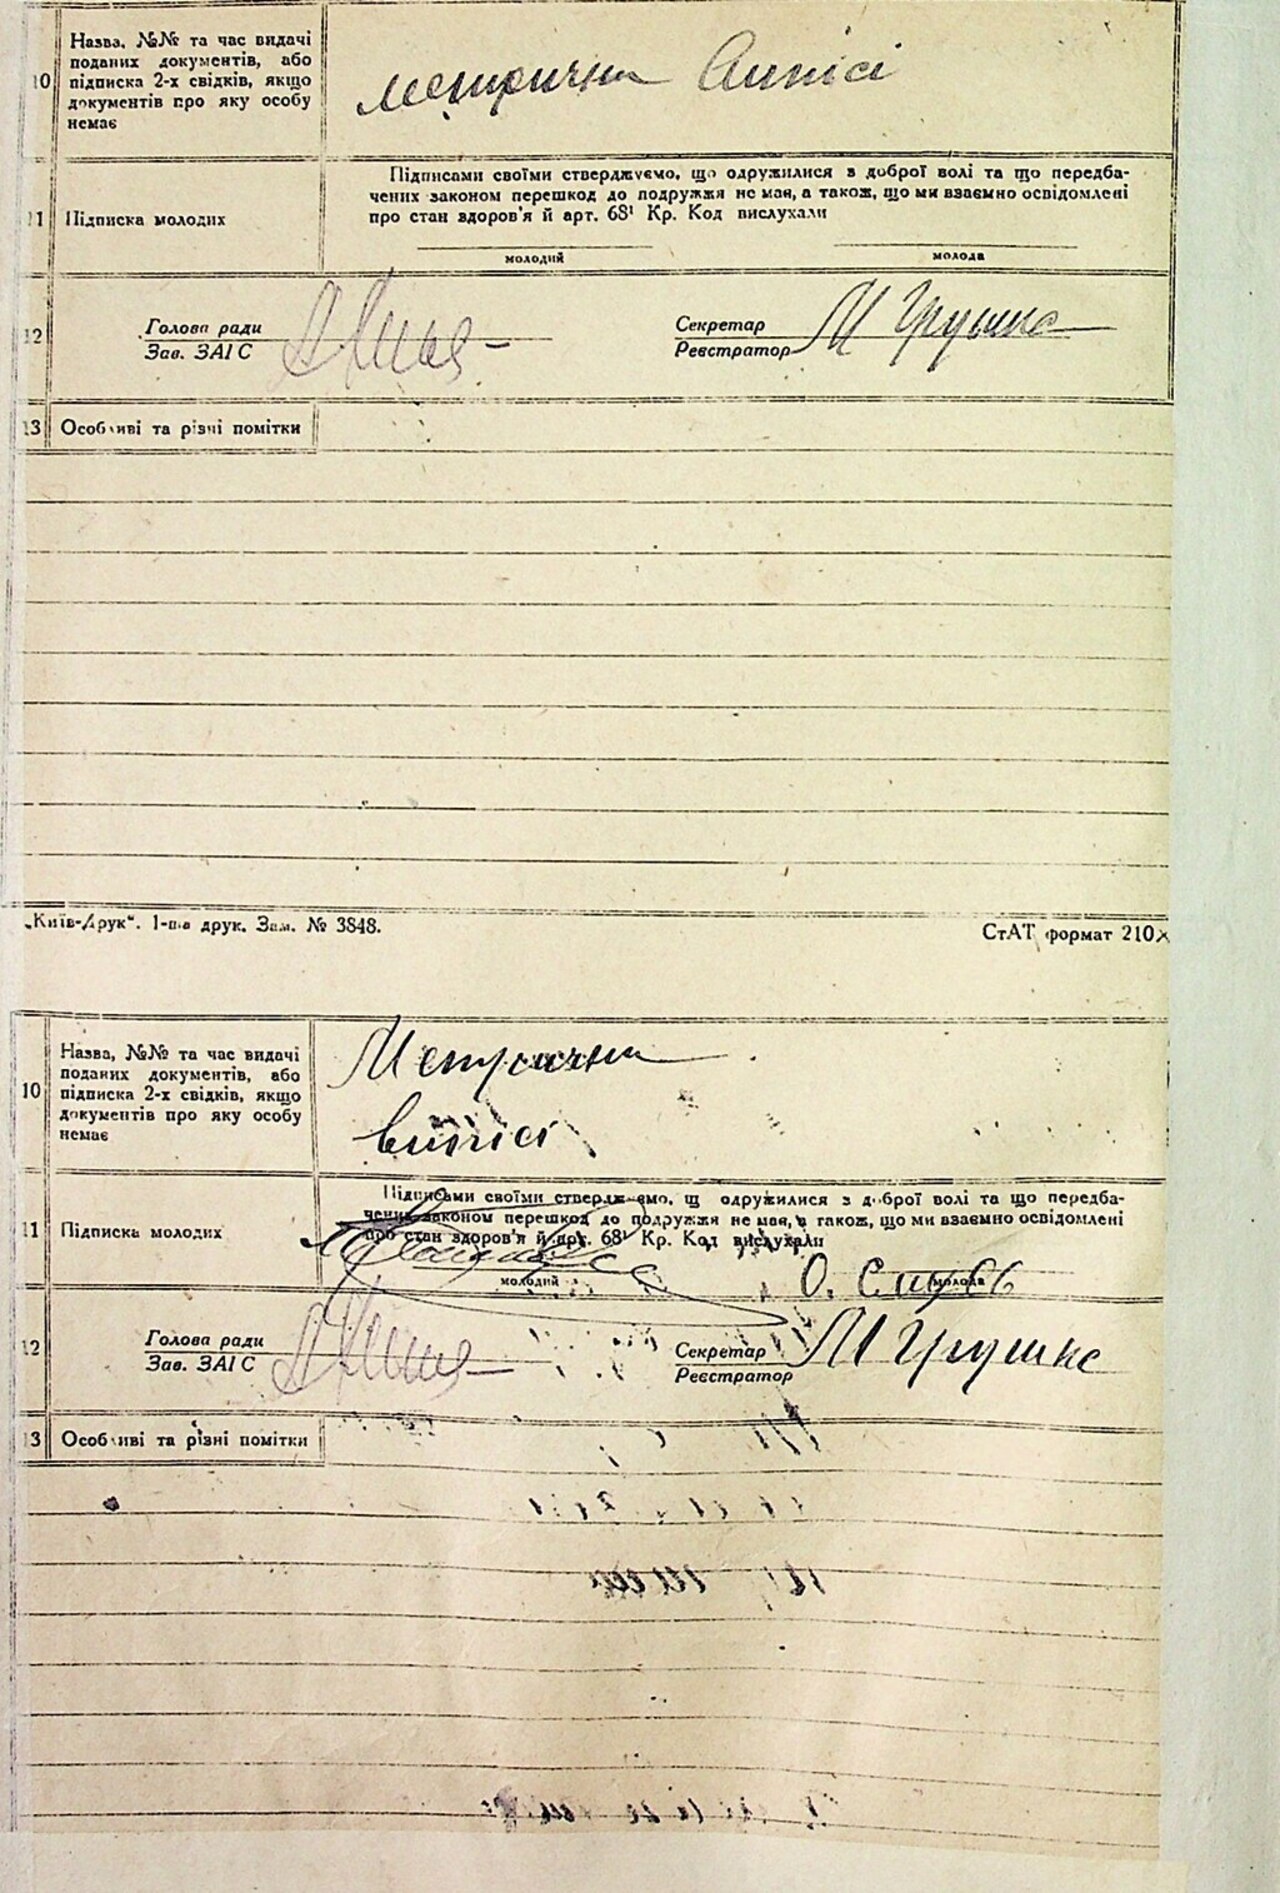 10
Назва, №№ та час видачі
поданих документів, або
підписка 2-х свідків, якщо
документів про яку особу
немає
метричні виписі
11
Підписка молодих
Підписами своїми стверджуємо, що одружилися з доброї волі та що передба-
чених законом перешкод до подружжя не має, а також, що ми взаємно освідомлені
про стан здоров'я й арт. 68¹ Кр. Код вислухали
молодий
молода
12
Голова ради
Зав. ЗАГС
Секретар
Реєстратор
М Грушко
13
Особливі та різні помітки
„Київ-Друк“. 1-ша друк. Зам. № 3848.
СтАТ формат 210×
10
Назва, №№ та час видачі
поданих документів, або
підписка 2-х свідків, якщо
документів про яку особу
немає
Метричні
виписі
11
Підписка молодих
Підписами своїми стверджуємо, щ одружилися з доброї волі та що передба-
чених законом перешкод до подружжя не має, а також, що ми взаємно освідомлені
про стан здоров'я й арт. 68¹ Кр. Код вислухали
молодий
молода
12
Голова ради
Зав. ЗАГС
Секретар
Реєстратор
М Грушко
13
Особливі та різні помітки